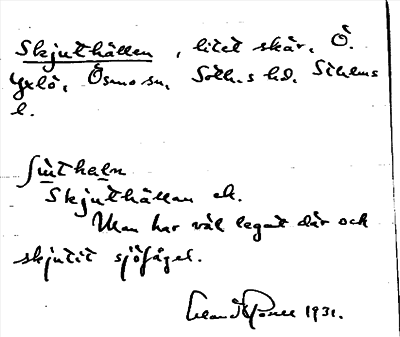 Skjuthällen, litet skär, Ö.
Yxlö, Ösmo sn, Soth.s hd, Sthlms
l.
Skjuthällan ek.
Man har väl legat där och
skjutit sjöfågel.
1931.